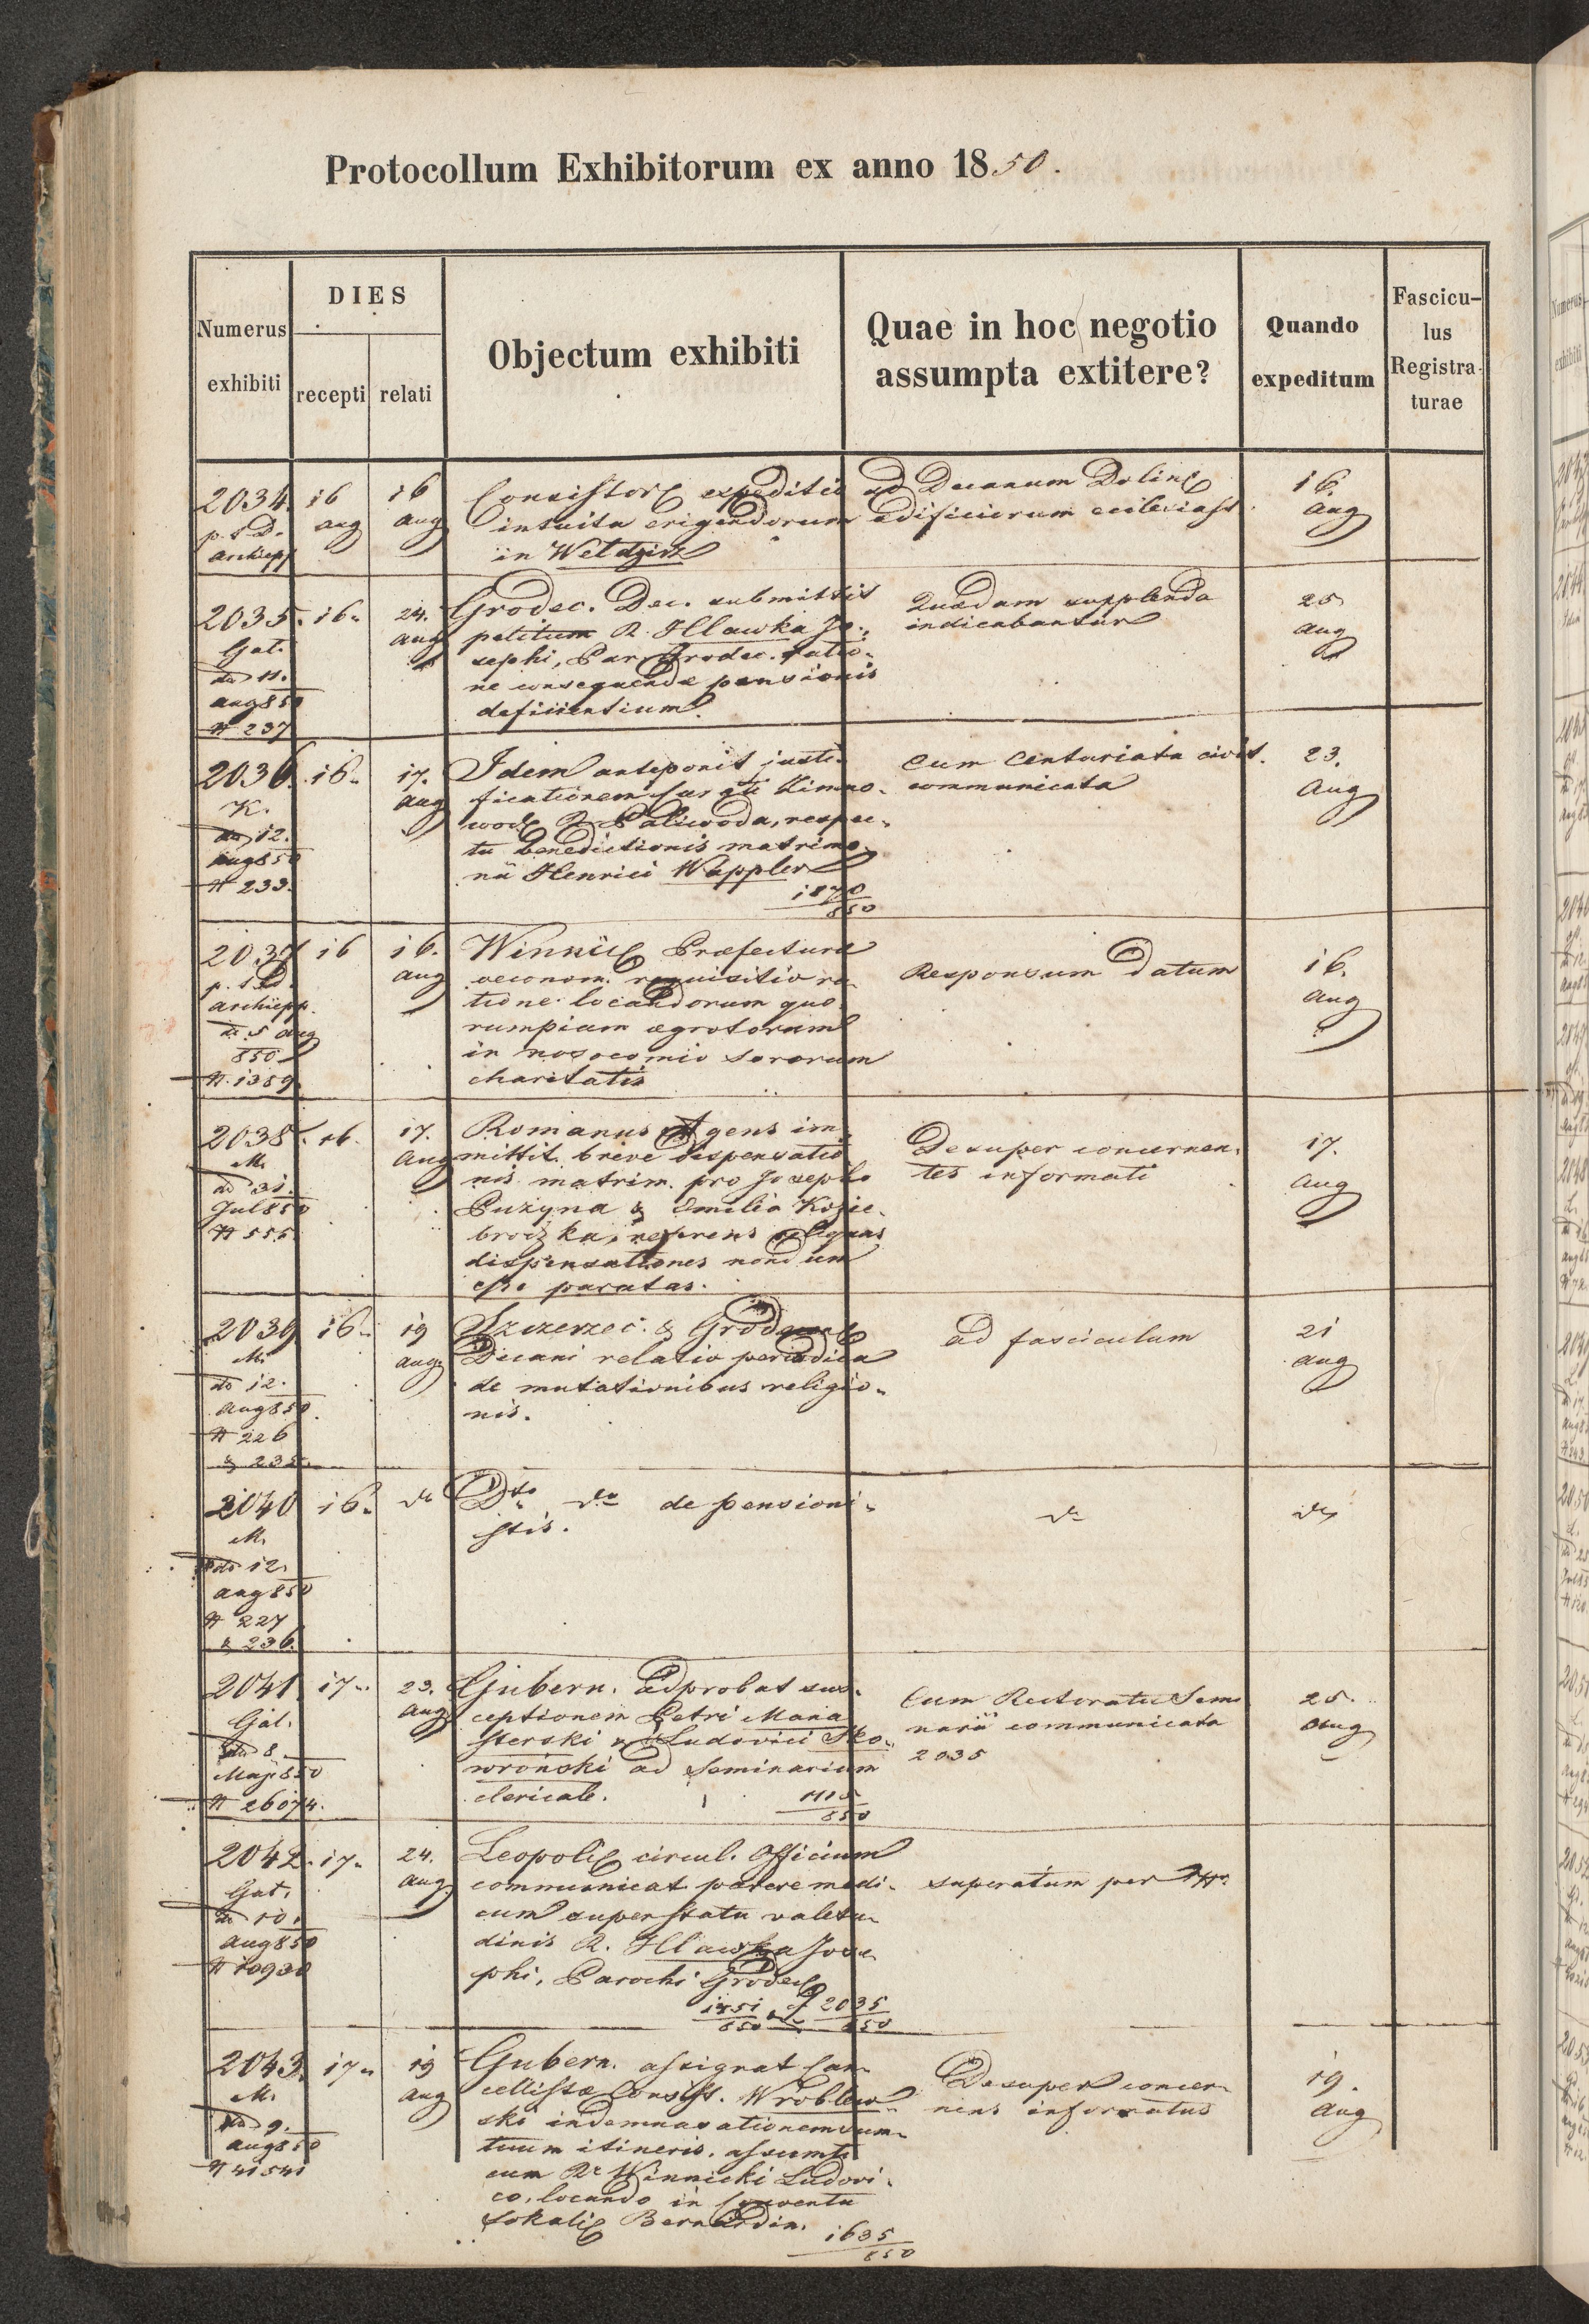 Protocollum Exhibitorum ex anno 1850.
Numerus exhibiti
DIES
recepti
relati
Objectum exhibiti
Quae in hoc negotio assumpta extitere?
Quando expeditum
Fascicu-
lus
Registra-
turae
2034.
p. s. D.
Archiepp
16
aug
16
aug
expeditio ad Decanum
intuitu erigendorum edificiorum ecclesiast.
in Weldzirz
16.
aug
2035.
Gal.
do 11.
aug 850
N 237
16.
24.
aug
Grodec. Dec. submittit
petitum R. Hlawka Jo-
sephi, Par. Grodec. ratio-
ne consequendae pensionis
deficientium.
Quaedam supplenda
indicabantur
25
aug
2036.
K.
do 12.
aug 850
N 233.
16.
17.
aug
Idem anteponit justi-
ficationem
R. Paliwoda, respec-
tu benedictionis matrimo-
nii Henrici Wappler
1870
850
cum Centuriata civit.
communicata
23.
Aug
2037
p. s. D.
Archiepp.
do 5 aug
850
N. 1389.
16
16.
aug
Praefectura
oeconom. requisitio ra-
tione locandorum quo-
rumpiam aegrotorum
in nosocomio sororum
charitatis
Responsum datum
16.
aug
2038.
M.
do 31.
Jul 850
N 555
16.
17.
Aug
Romanus Agens im-
mittit breve dispensatio
nis matrim. pro Josepho
Puzyna & Emilia Kozie-
brodzka, referens reliquas
dispensationes nondum
esse paratas.
Desuper concernen-
tes informati
17.
aug
2039
M.
do 12.
aug 850.
N 226
& 235.
16.
19
aug.
Szczerzec. &
Decani relatio periodica
de mutationibus religio-
nis.
ad fasciculum
21
aug
2040
M.
do 12.
aug 850
N 227
& 236.
16.
do
Dto do de pensioni-
stis.
do
do
2041.
Gal.
do 8.
Maj. 850
N 26074.
17.
23.
aug
Gubern. adprobat sus-
ceptionem Petri Mana
sterski & Ludovici Sko-
wroński ad Seminarium
clericale.
850
Cum Rectoratu Semi
narii communicata
2035
25.
aug
2042.
Gal.
do 10.
aug 850
N 10930
17.
24.
aug.
circul. Officium
communicat parere medi-
cum super statu valetu-
dinis R. Hlawka Jose-
phi, Parochi
1851 & 2035
850 850
superatum per
2043.
M.
do 9.
aug 850
N 41541
17.
19
aug
Gubern. assignat Can-
cellistae Consist. Wróblew-
ski indemnasationem sum-
tuum itineris, assumti
cum Rr Winnicki Ludovi-
co, locando in Conventu
Bernardin.
1635
850
Desuper concer-
nens informatus
19.
Aug